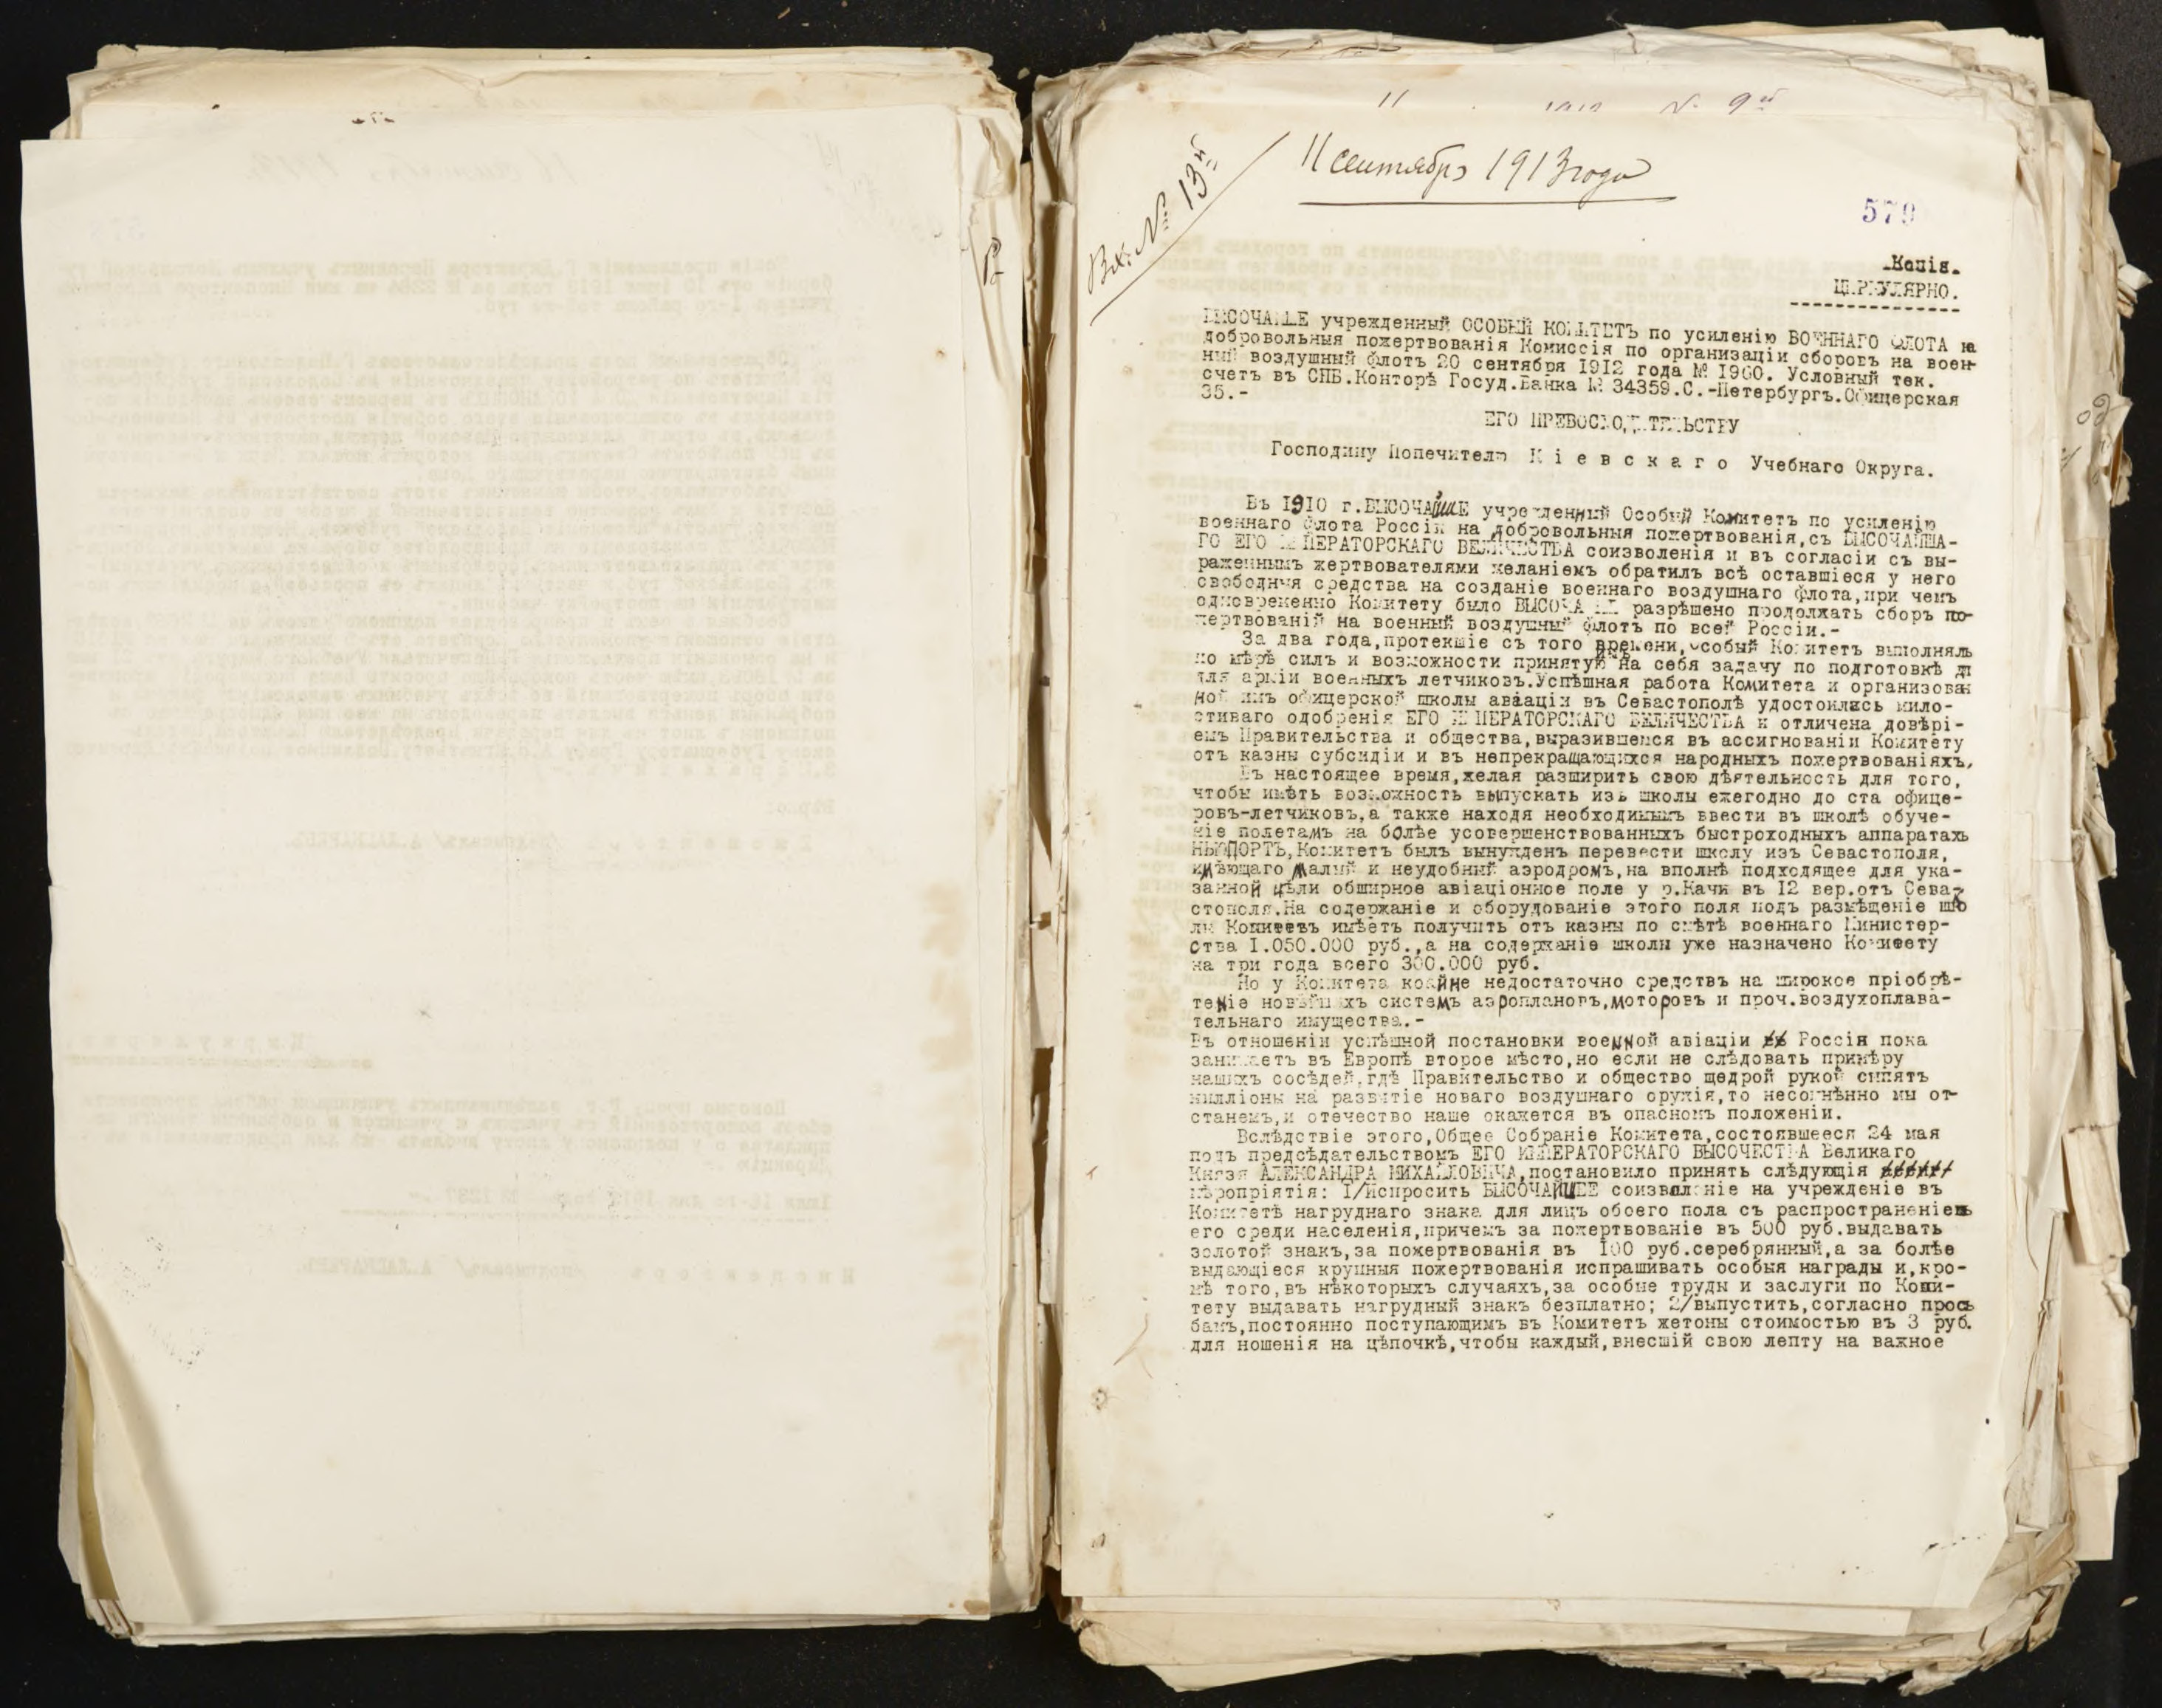 11 сентября 1913 года
Вх. № 13й
579
Копія.
ЦИРКУЛЯРНО.
ВЫСОЧАЙШЕ учрежденный ОСОБЫЙ КОМИТЕТЪ по усиленію ВОЕННАГО ФЛОТА на
добровольныя пожертвованія Комиссія по организаціи сборовъ на воен-
ный воздушный флотъ 20 сентября 1912 года № 1960. Условный тек.
счетъ въ СПБ.Конторѣ Госуд.Банка № 34359.С.-Петербургъ.Офицерская
35.-
ЕГО ПРЕВОСХОДИТЕЛЬСТВУ
Господину Попечителю К і е в с к а г о Учебнаго Округа.
Въ 1910 г.ВЫСОЧАЙШЕ учрежденный Особый Комитетъ по усиленію
военнаго флота Россіи на добровольныя пожертвованія,съ ВЫСОЧАЙША-
ГО ЕГО ИМПЕРАТОРСКАГО ВЕЛИЧЕСТВА соизволенія и въ согласіи съ вы-
раженнымъ жертвователями желаніемъ обратилъ всѣ оставшіеся у него
свободныя средства на созданіе военнаго воздушнаго флота,при чемъ
одновременно Комитету было ВЫСОЧАЙШЕ разрѣшено продолжать сборъ по-
жертвованій на военный воздушный флотъ по всей Россіи.-
За два года,протекшіе съ того времени,особый Комитетъ выполнялъ
по мѣрѣ силъ и возможности принятую имъ на себя задачу по подготовкѣ дл
для арміи военныхъ летчиковъ.Успѣшная работа Комитета и организован
ной имъ офицерской школы авіаціи въ Севастополѣ удостоились мило-
стиваго одобренія ЕГО ИМПЕРАТОРСКАГО ВЕЛИЧЕСТВА и отличена довѣрі-
емъ Правительства и общества,выразившемся въ ассигнованіи Комитету
отъ казны субсидіи и въ непрекращающихся народныхъ пожертвованіяхъ.
Въ настоящее время,желая разширить свою дѣятельность для того,
чтобы имѣть возможность выпускать изъ школы ежегодно до ста офице-
ровъ-летчиковъ,а также находя необходимымъ ввести въ школѣ обуче-
ніе полетамъ на болѣе усовершенствованныхъ быстроходныхъ аппаратахъ
НЬЮПОРТЪ,Комитетъ былъ вынужденъ перевести школу изъ Севастополя,
имѣющаго малый и неудобный аэродромъ,на вполнѣ подходящее для ука-
занной цѣли обширное авіаціонное поле у р.Качи въ 12 вер.отъ Сева-
стополя.На содержаніе и оборудованіе этого поля подъ размѣщеніе шко
лы Комитетъ имѣетъ получить отъ казны по смѣтѣ военнаго Министер-
ства 1.050.000 руб.,а на содержаніе школы уже назначено Комитету
на три года всего 300.000 руб.
Но у Комитета крайне недостаточно средствъ на широкое пріобрѣ-
теніе новѣйшихъ системъ аэроплановъ,моторовъ и проч.воздухоплава-
тельнаго имущества.-
Въ отношеніи успѣшной постановки военной авіаціи Россія пока
занимаетъ въ Европѣ второе мѣсто,но если не слѣдовать примѣру
нашихъ сосѣдей,гдѣ Правительство и общество щедрой рукой сыпятъ
милліоны на развитіе новаго воздушнаго оружія,то несомнѣнно мы от-
станемъ,и отечество наше окажется въ опасномъ положеніи.
Вслѣдствіе этого,Общее Собраніе Комитета,состоявшееся 24 мая
подъ предсѣдательствомъ ЕГО ИМПЕРАТОРСКАГО ВЫСОЧЕСТВА Великаго
Князя АЛЕКСАНДРА МИХАЙЛОВИЧА,постановило принять слѣдующія
мѣропріятія: 1/Испросить ВЫСОЧАЙШЕЕ соизволеніе на учрежденіе въ
Комитетѣ нагруднаго знака для лицъ обоего пола съ распространеніемъ
его среди населенія,причемъ за пожертвованіе въ 500 руб.выдавать
золотой знакъ,за пожертвованія въ 100 руб.серебрянный,а за болѣе
выдающіеся крупныя пожертвованія испрашивать особыя награды и,кро-
мѣ того,въ нѣкоторыхъ случаяхъ,за особые труды и заслуги по Коми-
тету выдавать нагрудный знакъ безплатно; 2/выпустить,согласно прось
бамъ,постоянно поступающимъ въ Комитетъ жетоны стоимостью въ 3 руб.
для ношенія на цѣпочкѣ,чтобы каждый,внесшій свою лепту на важное